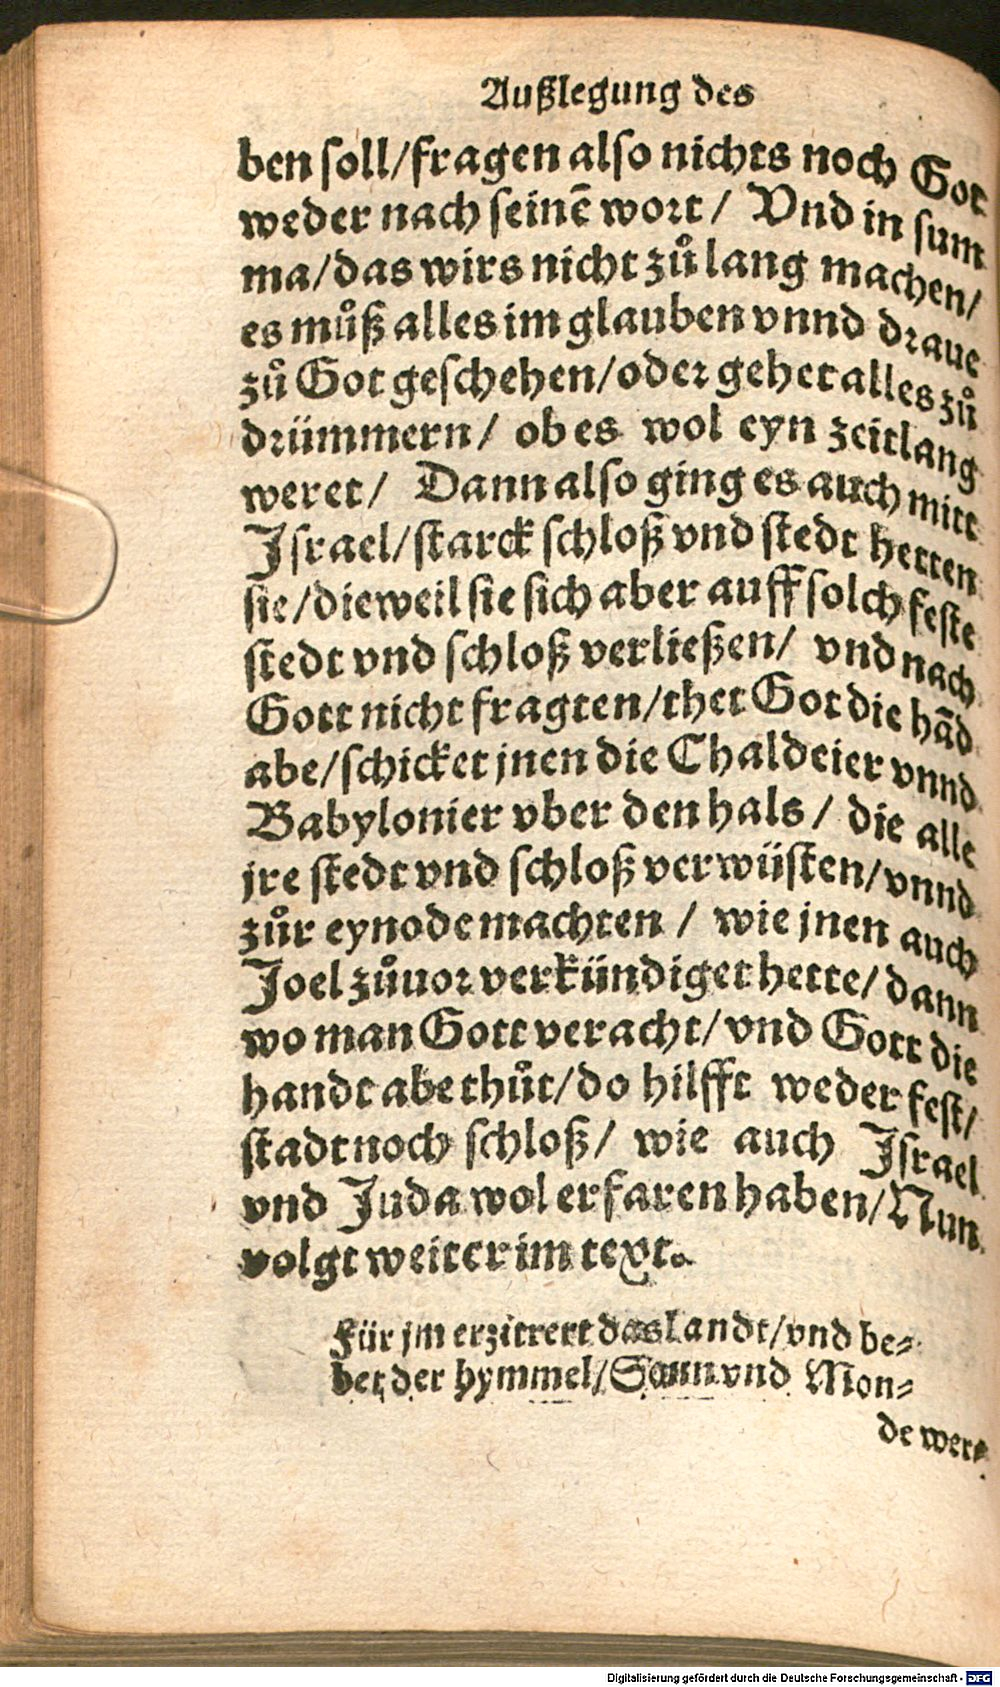 Außlegung des
ben soll/fragen also nichts noch Got
weder nach seinē wort/ Vnd in sum
ma/das wirs nicht zuͦ lang machen/
es muͦß alles im glauben vnnd draue
zuͦ Got geschehen/oder gehet alles zuͦ
drümmern/ ob es wol eyn zeitlang
weret/ Dann also ging es auch mitt
Israel/starck schloß vnd stedt hetten
sie/dieweil sie sich aber auff solch feste
stedt vnd schloß verließen/ vnd nach
Gott nicht fragten/thet Got die hād
abe/schicket jnen die Chaldeier vnnd
Babylonier vber den hals/ die alle
jre stedt vnd schloß verwüsten/vnnd
zuͦr eynode machten/ wie jnen auch
Joel zuͦuor verkündiget hette/dann
wo man Gott veracht/vnd Gott die
handt abe thuͦt/do hilfft weder fest/
stadt noch schloß/ wie auch Israel
vnd Juda wol erfaren haben/Nun
volgt weiter im text.
Für jm erzittert das landt/vnd be-
bet der hymmel/Sonn vnd Mon-
de wer-
Digitalisierung gefördert durch die Deutsche Forschungsgemeinschaft - DFG